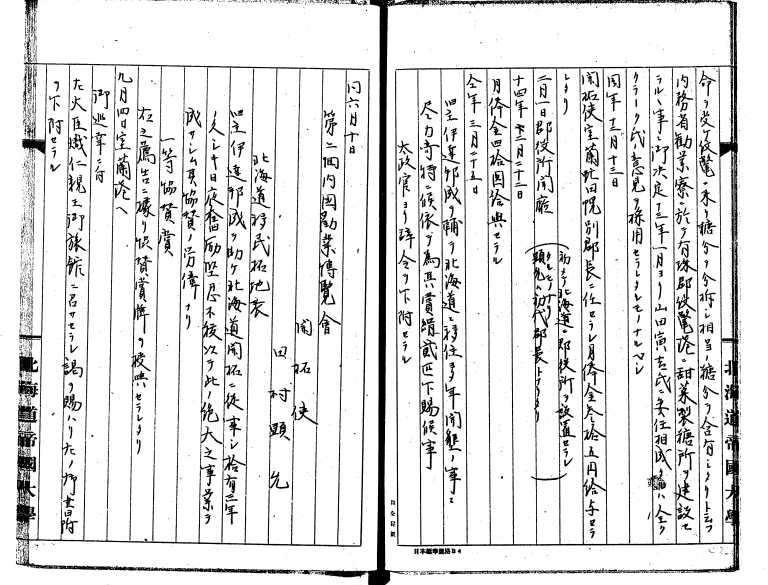 命ヲ受ケ伎驚ニ来リ糖分ヲ分析シ相当ノ糖分ヲ含有シタリトシテ
内務省勧業寮ニ於テ有珠郡伎驚港ニ甜菜製糖所ヲ建設セ
ラルヽ事ニ御決定十三年一月ヨリ山田寅吉氏ニ委任相成タルハ全ク
クラーク氏ノ意見ヲ採用セラレタルモノナルベシ
同年十二月十三日
開拓使室蘭虻田幌別郡長ニ任セラレ月俸金参拾五円給与セラ
レタリ
二月一日郡役所開廳
初メテ北海道ニ郡役所ヲ設置セラレ
タルモノナリ
顕允ハ初代郡長トナリタリ
十四年二月二十二日
月俸金四拾円給與セラル
仝年三月二十五日
四主伊達邦成ヲ輔ケ北海道ニ移住シ多年開墾ノ事ニ
尽力奇特ニ候依テ為其賞絹貳匹下賜候事
太政官ヨリ辞令ヲ下附セラル
同六月十日
第二回内国勧業博覧會
開拓使
田村顕允
北海道移民拓地表
四主伊達邦成ヲ助ケ北海道開拓ニ従事シ拾有三年
ノ久シキ日夜奮励堅忍不撓以テ此ノ絶大之事業ヲ
成サシム其協賛ノ労偉ナリ
一等協賛賞
右之薦告ニ據リ協賛賞牌ヲ授與セラレタリ
九月四日室蘭港ヘ
御巡幸ニ付
左大臣熾仁親王御旅館ニ召サセラレ謁ヲ賜ハリ左ノ御書附
ヲ下附セラル
北海道帝國大學
北海道帝國大學
日本標準規格B4